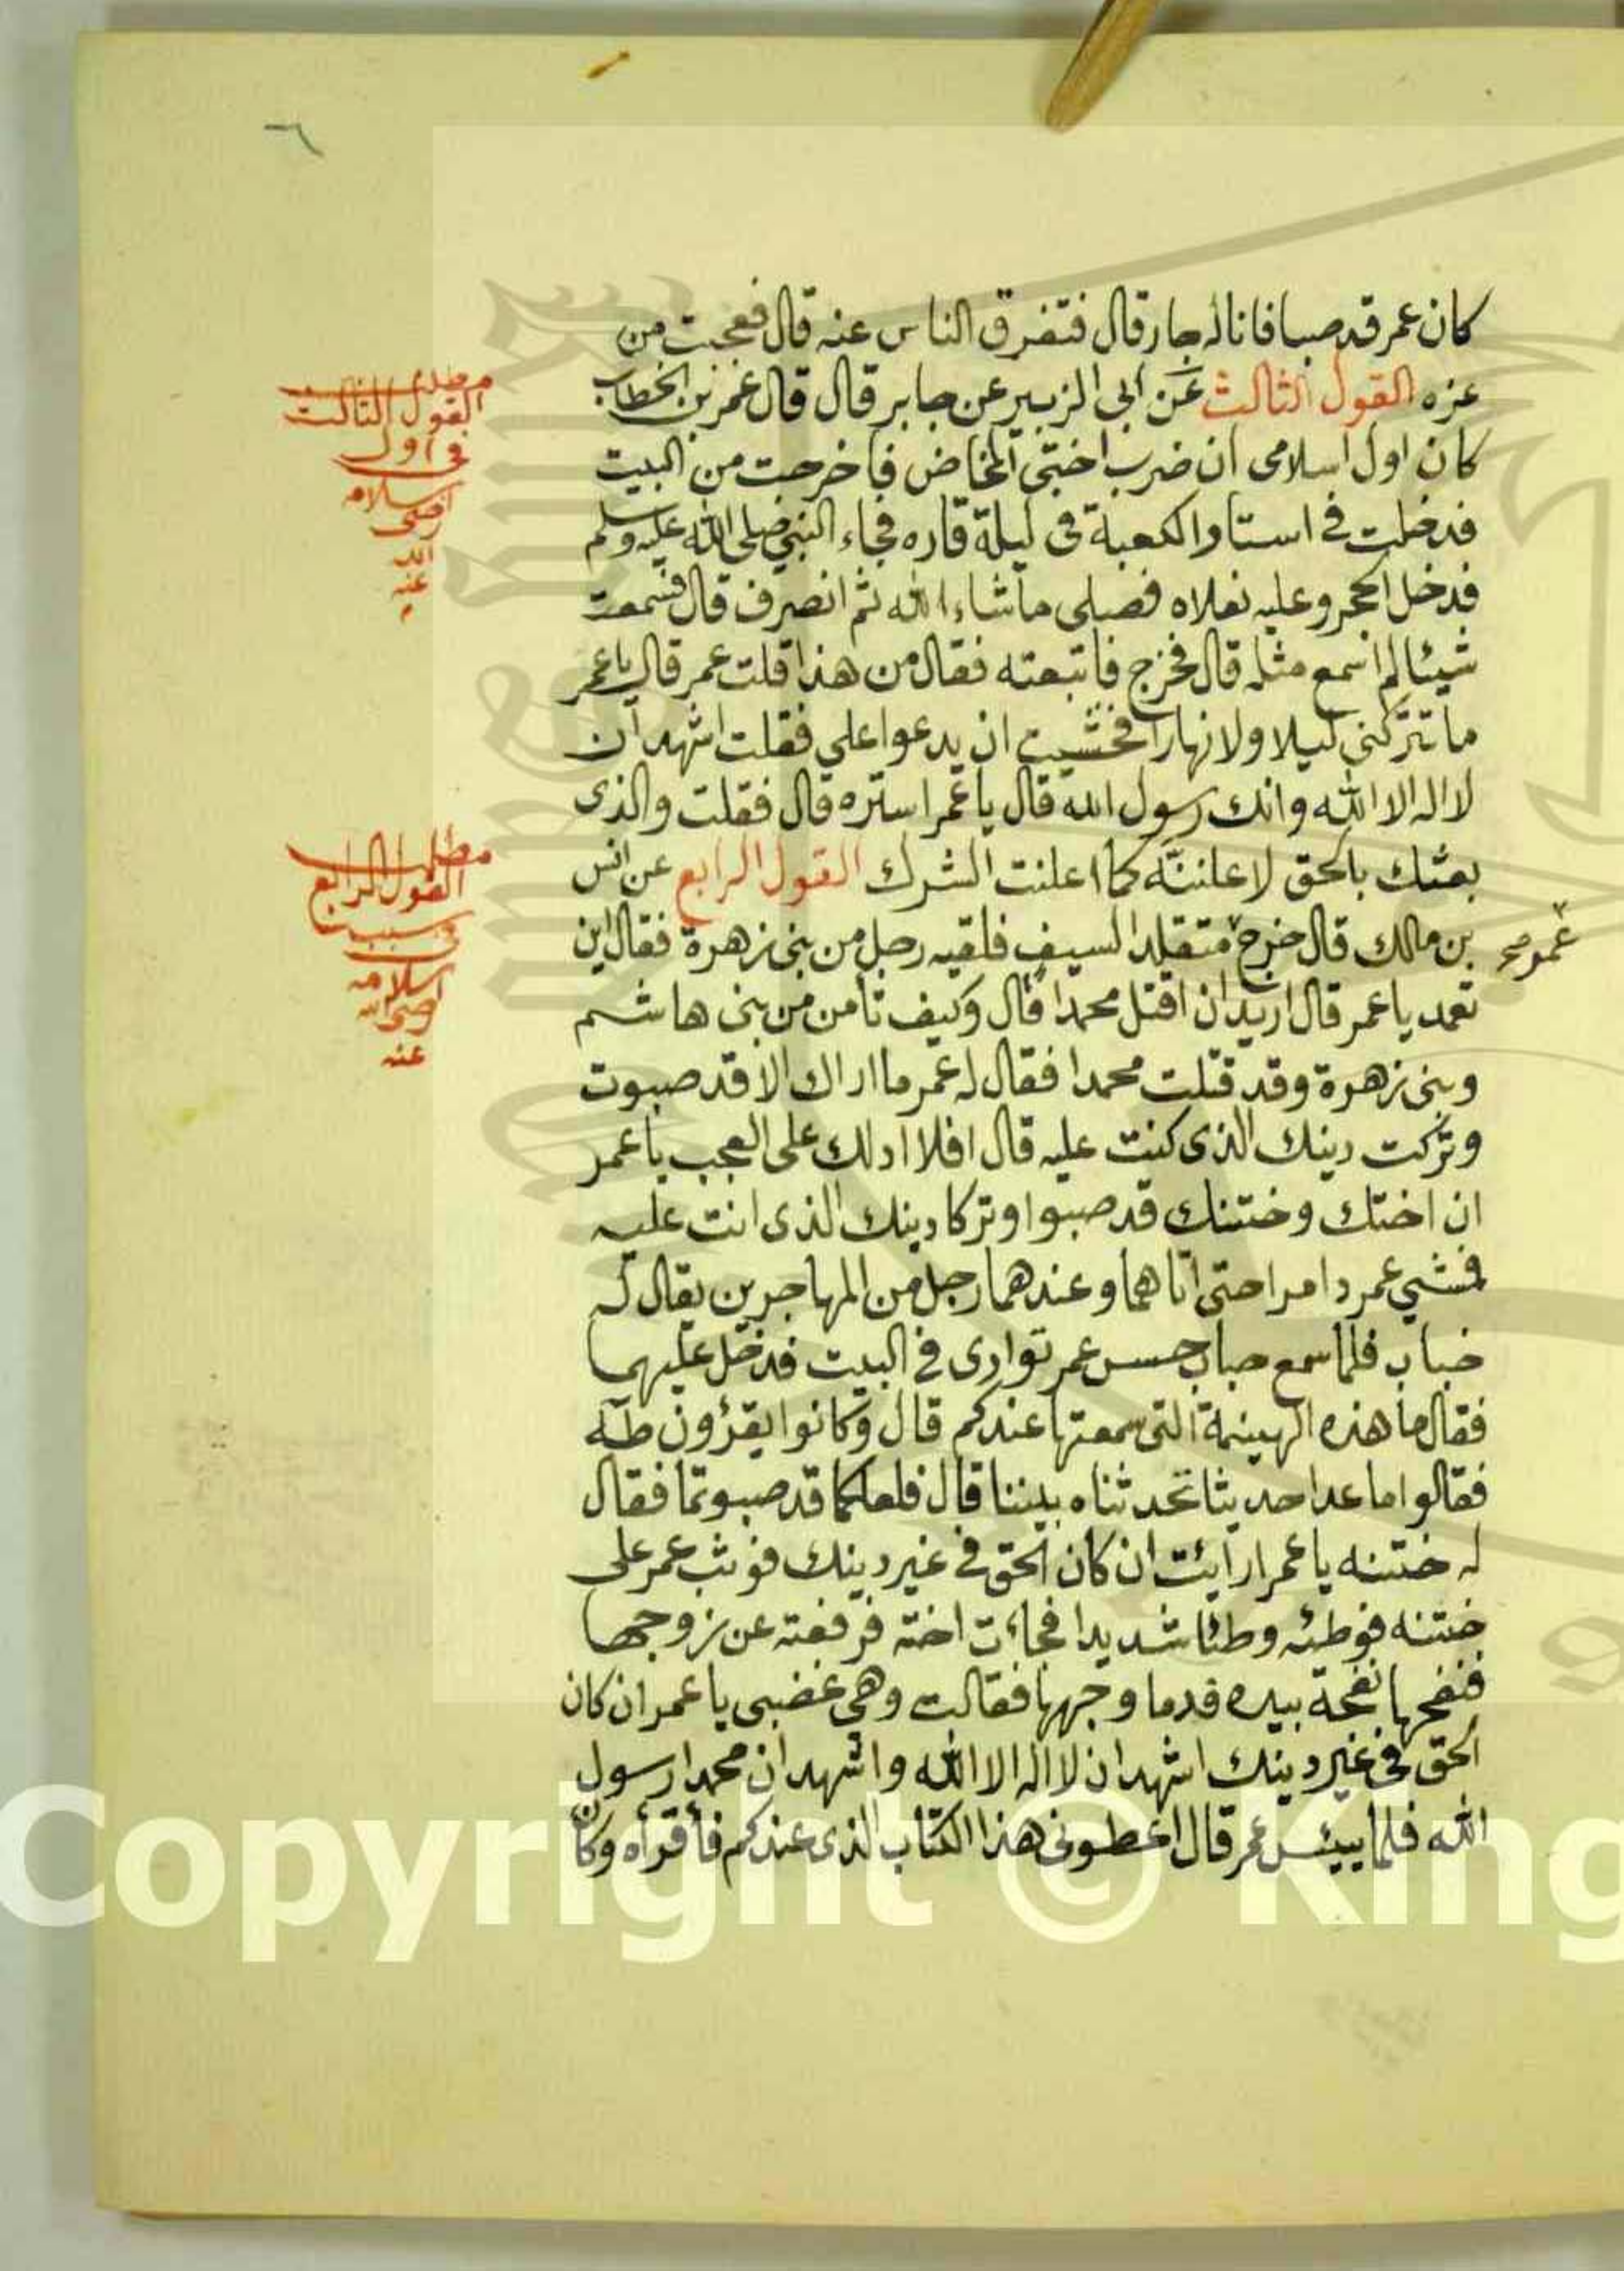 ٦
كان عمر قد صبا فانا له جار قال فتفرق الناس عنه قال فعجبت من
عزه القول الثالث عن ابى الزبير عن جابر قال قال عمر بن الخطاب
كان اول اسلامى ان ضرب اختى المخاض فاخرجت من البيت
فدخلت فى استار الكعبة فى ليلة قاره فجاء النبي صلى الله عليه وسلم
فدخل الحجر وعليه نعلاه فصلى ماشاء الله ثم انصرف قال فسمعت
شيئا لم اسمع مثله قال فخرج فاتبعته فقال من هذا قلت عمر قال يا عمر
ما تتركنى ليلا ولا نهارا فخشيت ان يدعوا على فقلت اشهد ان
لا اله الا الله وانك رسول الله قال يا عمر استره قال فقلت والذى
بعثك بالحق لاعلننّه كما اعلنت الشرك القول الرابع عن انس
بن مالك قال خرج متقلد السيف فلقيه رجل من بنى زهرة فقال اين
تعمد يا عمر قال اريد ان اقتل محمدا قال وكيف تأمن من بنى هاشم
وبنى زهرة وقد قتلت محمدا فقال له عمر ما اراك الا قد صبوت
وتركت دينك الذى كنت عليه قال افلا ادلك على العجب يا عمر
ان اختك وختنك قد صبوا وتركا دينك الذى انت عليه
فمشي عمر دامرا حتى اتاهما وعندهما رجل من المهاجرين يقال له
خباب فلما سمع خباب حس عمر توارى فى البيت فدخل عليهما
فقال ما هذه الهينمة التى سمعتها عندكم قال وكانوا يقرؤن طه
فقالوا ما عدا حديثا تحدثناه بيننا قال فلعلكما قد صبوتما فقال
له ختنه يا عمر ارأيت ان كان الحق فى غير دينك فوثب عمر على
ختنه فوطئه وطئا شديدا فجاءت اخته فرفعته عن زوجها
فنفحها نفحة بيده فدما وجهها فقالت وهى غضبى يا عمر ان كان
الحق فى غير دينك اشهد ان لا اله الا الله واشهد ان محمدا رسول
الله فلما يئس عمر قال اعطونى هذا الكتاب الذى عندكم فأقرأه وكان
عمر صح
مطلب
القول الثالث
فى اول
اسلامه
رضى
الله
عنه
مطلب
القول الرابع
فى سبب
اسلامه
رضى الله
عنه
Copyright © King